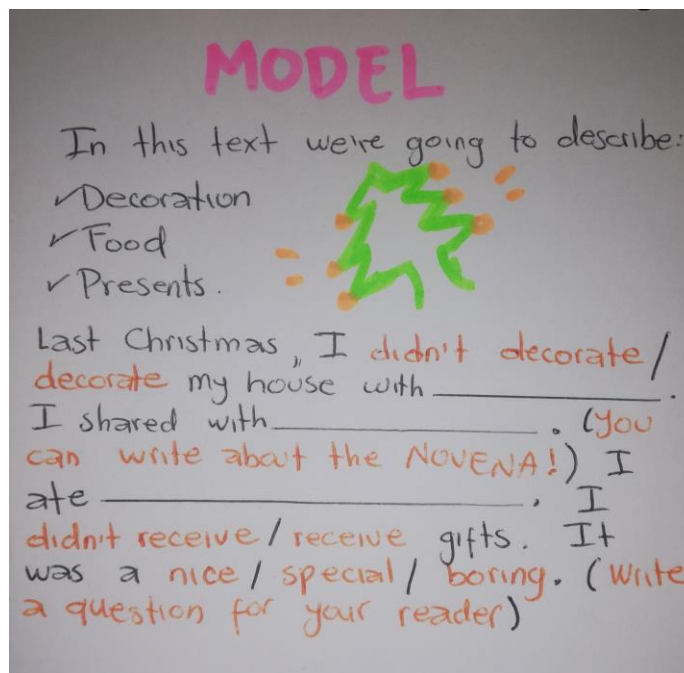 MODEL
In this text we're going to describe:
✓Decoration
✓Food
✓Presents.
Last Christmas, I didn't decorate/
decorate my house with ____________.
I shared with ____________. (you
can write about the NOVENA!) I
ate ____________. I
didn't receive/receive gifts. It
was a nice/special/boring. (Write
a question for your reader)